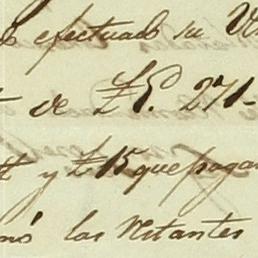 efectuado su
de £P. 271-
y £ 15 que pagar
los restantes